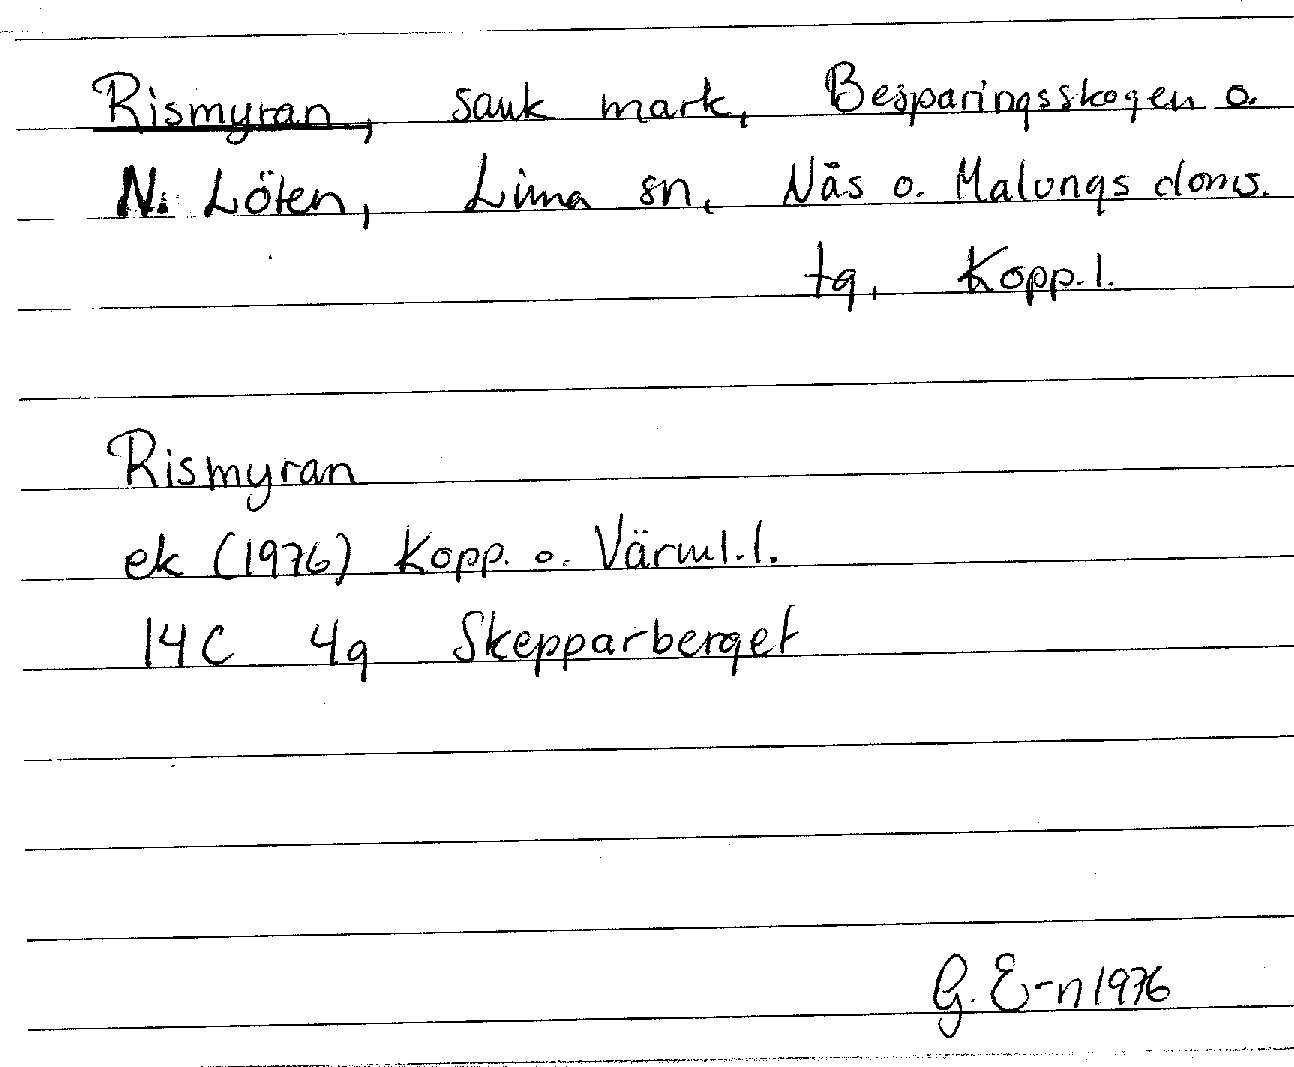 Rismyran, sank mark, Besparingsskogen o.
N. Löten, Lima sn, Näs o. Malungs doms.
tg, Kopp. l.
Rismyran
ek (1976) Kopp. o. Värml. l.
14C 4g Skepparberget
G. E-n 1976